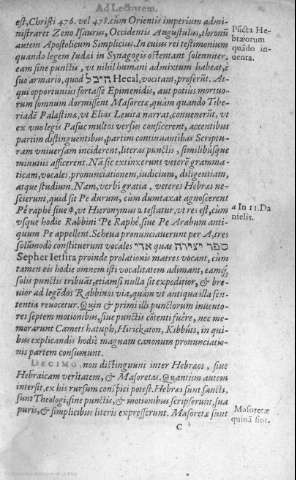 Ad Lectorem.
est, Christi 476. vel 478. cum Orientis imperium admi-
nistraret Zeno Isaurus, Occidentis Augustulus, thronũ
autem Apostolicum Simplicius. In cuius rei testimonium
quando legem Iudæi in Synagogis ostentant solenniter,
eam sine punctis, vt nihil humani admixtum habeat, è
suo armario, quod היכל Hecal, vocitant, proferũt. At-
qui opportunior fortasse Epimenidis, aut potius mortuo-
rum somnum dormissent Masoretæ, quàm quando Tibe-
riadẽ Palæstinæ, vt Elias Leuita narrat, conuenerũt, vt
ex vowelegis Pasuc multos versus conficerent, accentibus
partim distinguentibus, partim continuantibus Scriptu-
ram vniuersam inciderent, literas punctis, similibúsque
minutiis afficerent. Nã sic extinxerunt veterẽ gramma-
ticam, vocales, pronunciationem, iudicium, diligentiam,
atque studium. Nam, verbi gratia, veteres Hebræi ne-
scierunt, quid sit Pe durum, cum dumtaxat agnoscerent
Pe raphe siue φ, vt Hieronymus a testatur, vt res est, cum
vsque hodie Rabbini Pe Raphe, siue Pe Arabum anti-
quum Pe appellent. Scheua pronunciauerunt per A, tres
solũmodò constituerunt vocales אוי quas ספר יצירה
Sepher Ietsira proinde prolationis matres vocant, cum
tamen eis hodie omnem isti vocalitatem adimant, eamq́;
solis punctis tribuãt, etiamsi nulla sit expeditior, & bre-
uior ad legẽdos Rabbinos via, quàm vt antiqua illa sen-
tentia reuocetur. Quin & primi illi punctorum inuento-
res septem motionibus, siue punctis cõtenti fuêre, nec me-
morarunt Camets hatuph, Hirickaton, Kibbuts, in qui-
bus explicandis hodie magnam canonum pronunciatio-
nis partem consumunt.
DECIMO, non distinguunt inter Hebræos, siue
Hebraicam veritatem, & Masoretas. Quantum autem
intersit, ex his rursum conspici potest. Hebræi sunt sancti,
sunt Theologi, sine punctis, & motionibus scripserunt, sua
puris, & simplicibus literis expresserunt. Masoretæ sunt
C
Pũcta He-
bræorum
quãdo in-
uenta.
a In 11. Da
nielis.
Masoretæ
quinã sint.